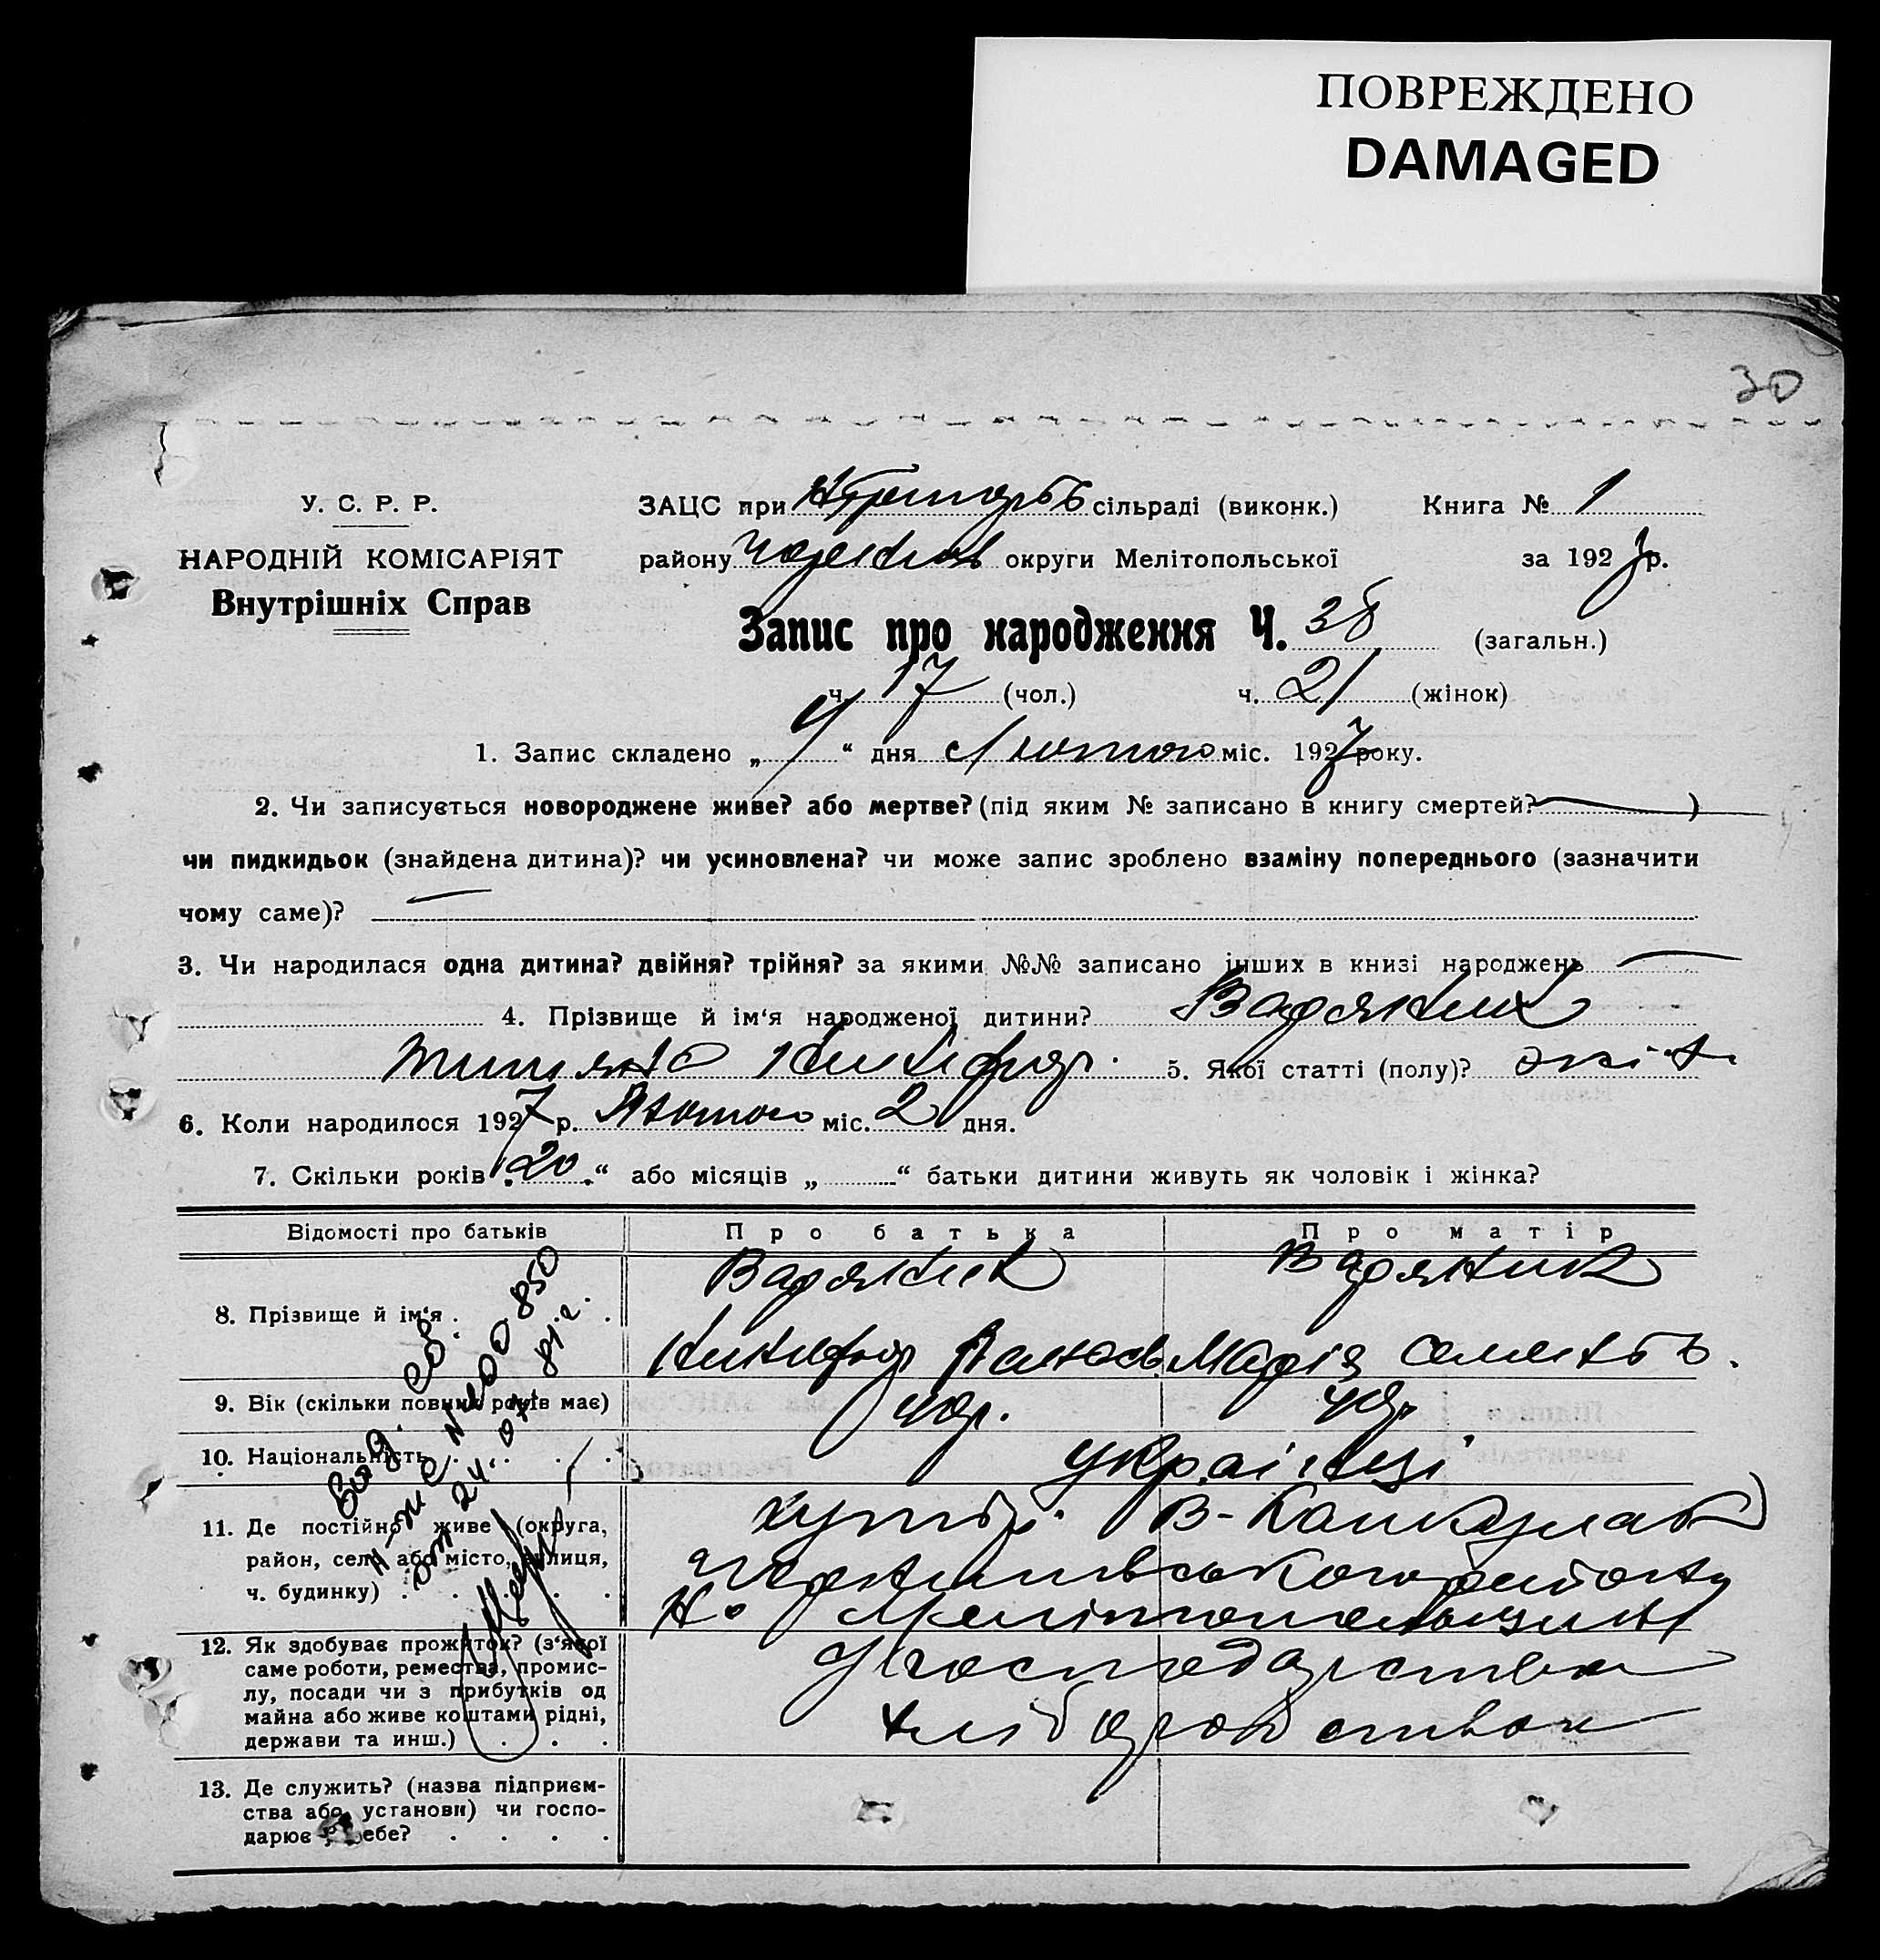 ПОВРЕЖДЕНО
DAMAGED
30
У. С. Р. Р.
НАРОДНІЙ КОМІСАРІЯТ
Внутрішніх Справ
ЗАЦС при сільраді (виконк.) Книга № 1
району округи Мелітопольської за 1927 р.
Запис про народження Ч. 38 (загальн.)
ч. 17 (чол.) ч. 21 (жінок)
1. Запис складено „ “ дня Лютого міс. 1927 року.
2. Чи записується новороджене живе? або мертве? (під яким № записано в книгу смертей? — )
чи пидкидьок (знайдена дитина)? чи усиновлена? чи може запис зроблено взаміну попереднього (зазначити
чому саме)? —
3. Чи народилася одна дитина? двійня? трійня? за якими №№ записано інших в книзі народжень —
4. Прізвище й ім‘я народженої дитини? Варяник
5. Якої статті (полу)?
6. Коли народилося 1927 р. Лютого міс. 2 дня.
7. Скільки років „20“ або місяців „ “ батьки дитини живуть як чоловік і жінка?
Відомості про батьків Про батька Про матір
8. Прізвище й ім‘я . . Варяник Варяник
Никифор Марія
9. Вік (скільки повних років має)
10. Національність . . . . українці
11. Де постійно живе (округа,
район, село або місто, вулиця,
ч. будинку) . . . .
хутір
Мелітопольщини
12. Як здобуває прожиток? (з‘якої
саме роботи, ремества, промис-
лу, посади чи з прибутків од
майна або живе коштами рідні,
держави та инш.) . . .
господарством
хліборобством
13. Де служить? (назва підприєм-
ства або установи) чи госпо-
дарює у себе? . . . .
Выд. св.
850
от 24. 81 г.